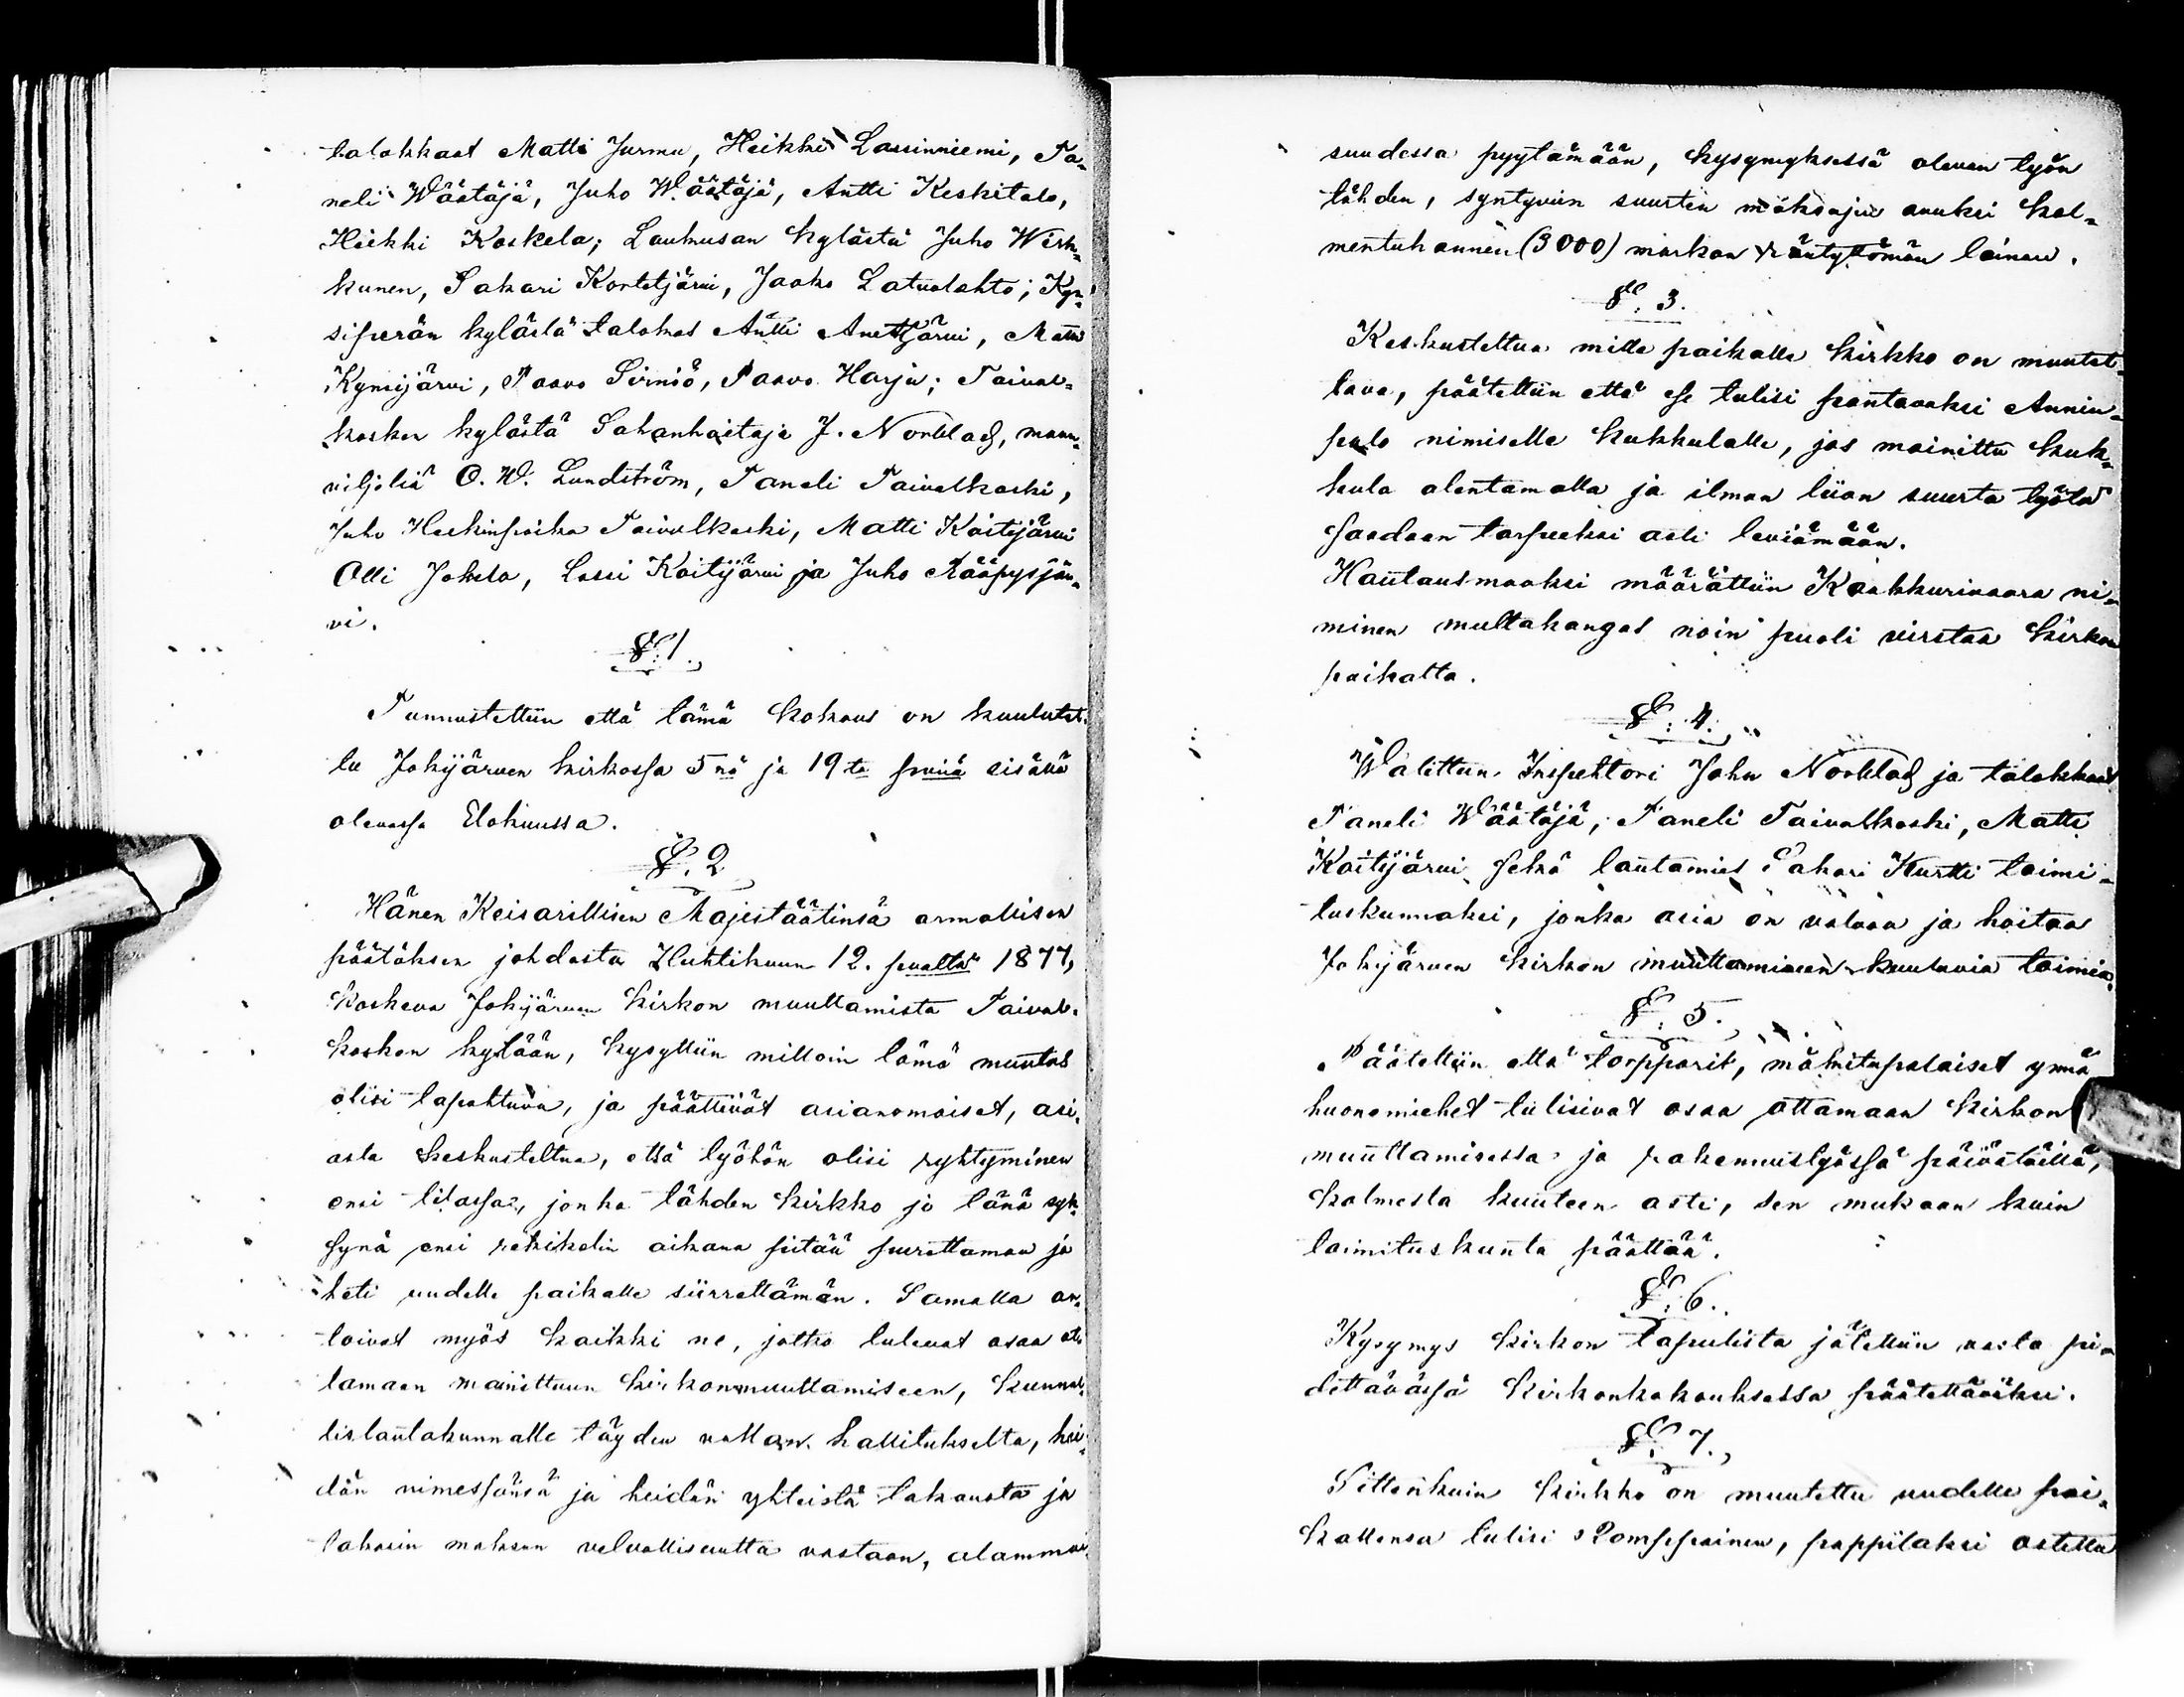 talokkaat Matti Jurmu, Heikki Lassinniemi, Ta-
neli Wäätäjä, Juho Wäätäjä, Antti Keskitalo,
Heikki Koskela; Loukusan kylästä Juho Wirk-
kunen, Sakari Kortetjärvi, Jaako Latvalehto; Kyn-
siperän kylästä talokas Antti Anettjärvi, Matti
Kynsijärvi, Paavo Sirniö, Paavo Harju; Taival-
kosken kylästä Sahanhoitaja J. Norblad, maan-
viljeliä O. W. Lundström, Taneli Taivalkoski,
Juho Heikinpoika Taivalkoski, Matti Koitijärvi
Olli Jokela, Lassi Koitijärvi ja Juho Rääpysjär-
vi.
§. 1.
Tunnustettiin että tämä kokous on kuulutet-
tu Jokijärven kirkossa 5nä ja 19ta pnä sisällä
olevassa Elokuussa.
§. 2
Hänen Keisarillisen Majestäätinsä armollisen
päätöksen johdosta Huhtikuun 12. pvältä 1877,
koskeva Jokijärven kirkon muuttamista Taival-
kosken kylään, kysyttiin milloin tämä muutos
olisi tapahtuva, ja päättivät asianomaiset, asi-
asta keskusteltua, että työhön olisi ryhtyminen
ensi tilassa, jonka tähden kirkko jo tänä syk-
synä ensi rekikelin aikana pitää purettaman ja
heti uudelle paikalle siirrettämän. Samalla an-
toivat myös kaikki ne, jotka tulevat osaa ot-
tamaan mainittuun kirkonmuuttamiseen, kunnal-
lislautakunnalle täyden vallan hallitukselta, hei-
dän nimessänsä ja heidän yhteistä takausta ja
takasin maksun velvollisuutta vastaan, alammai-
suudessa pyytämään, kysymyksessä olevan työn
tähden, syntyvän suurten maksujen avuksi kol-
mentuhannen (3000) markan räntyttömän lainan.
§. 3.
Keskusteltua mille paikalle kirkko on muutet-
tava, päätettiin että se tulisi pantavaksi Annin-
palo nimiselle kukkulalle, jos mainittu kuk-
kula alentamalla ja ilman liian suurta työtä
saadaan tarpeeksi asti leviämään.
Hautausmaaksi määrättiin Kaakkurivaara ni-
minen multakangas noin puoli virstaa kirkon
paikalta.
§. 4.
Walittiin Inspehtori John Norblad ja talokkaat
Taneli Wäätäjä, Taneli Taivalkoski, Matti
Koitijärvi sekä lautamies Sakari Kurtti toimi-
tuskunnaksi, jonka asia on valvoa ja hoitaa
Jokijärven kirkon muuttamiseen kuuluvia toimia.
§. 5.
Päätettiin että torpparit, mäkitupalaiset ynnä
huonemiehet tulisivat osaa ottamaan kirkon
muuttamisessa ja rakennustyössä päivätöillä,
kolmesta kuuteen asti, sen mukaan kuin
toimituskunta päättää.
§. 6.
Kysymys kirkon tapulista jätettiin vasta pi-
dettävässä kirkonkokouksessa päätettäväksi.
§. 7.
Sittenkuin kirkko on muutettu uudelle pai-
kallensa tulisi Romppainen, pappilaksi ostettu